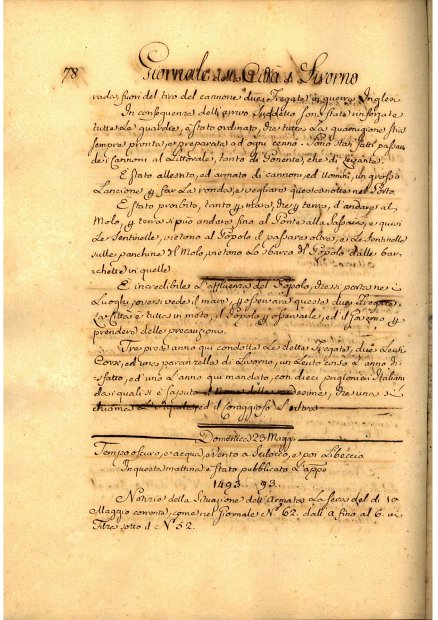 78 Giornale della Città di Livorno
rada, fuori del tiro del cannone due Fregate in guerra Inglesi
In conseguenza dell'arrivo suddetto sono state rinforzate
tutte le guardie, è stato ordinato, che tutta la guarnigione stia
sempre pronta, e preparata ad ogni cenno. Sono stati fatti passare
dei Cannoni al Littorale, tanto di Ponente, che di Levante.
È stato allestito, ed armato di cannoni, ed Uomini, un grosso
Lancione per far la ronda, e vegliare questa notte nel Porto.
È stato proibito, tanto per mare, che per terra, d'andare al
Molo, per terra si può andare fino al Ponte alla Passaia, e quivi
Le Sentinelle, vietono al Popolo il passare oltre, e Le Sentinelle
sulle panchine del Molo, vietono Lo sbarco del Popolo dalle bar-
chette in quelle
È incredibile L'affluenza del Popolo, che si porta nei
Luoghi, ove si vede il mare, per osservare queste due Fregate.
La Città è tutta in moto, il Popolo per osservare, ed il Governo per
prendere delle precauzioni.
Tre prede anno qui condotte Le dette Fregate, due Leuti
Corsi, ed una paranzella di Livorno, un Leuto corso L'anno di-
sfatto, ed uno L'anno qui mandato, con dieci prigionieri Italiani
dai quali si è saputo il nome delle medesime, che una si
chiama L'Aquila, ed il Coraggioso L'altra
Domenica 23 Maggio
Tempo oscuro, e acqua, e vento a Scilocco, e poi Libeccio
In questa mattina è stato pubblicato L'appo
1493. 93.
Notizie della Situazione dell'Armata La sera del dì 10
Maggio corrente, come nel Giornale N.º 62. dall' a fino al 6. in
Filze sotto il N.º 52.